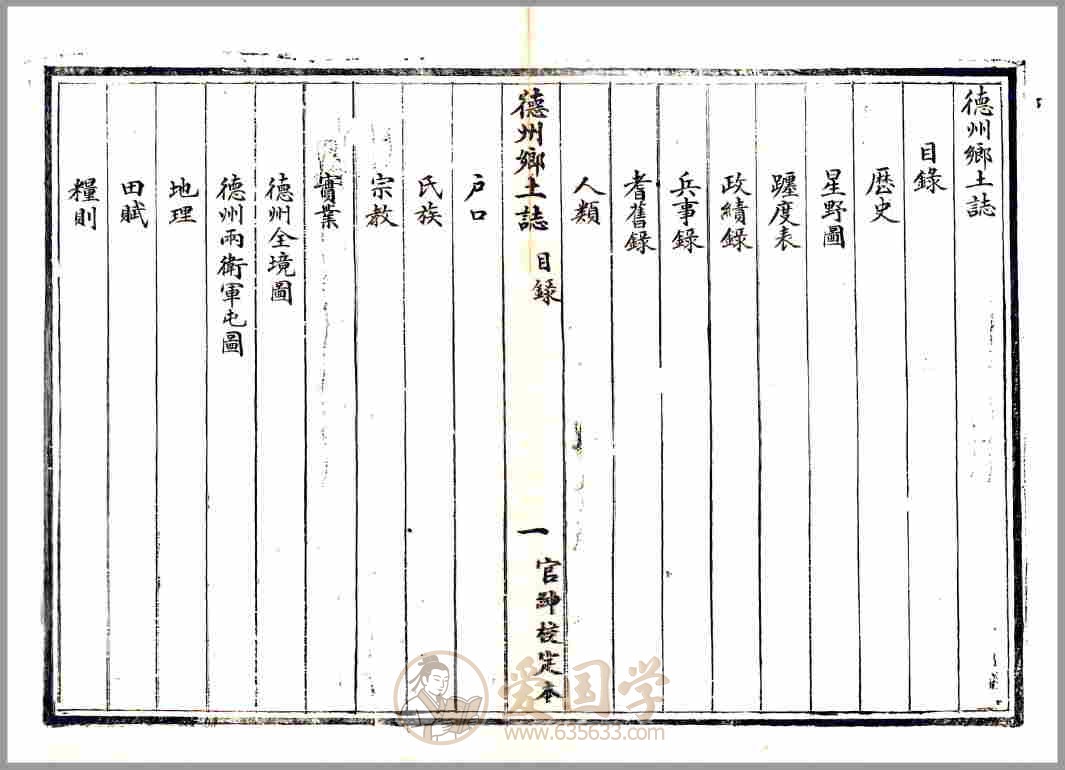 德州鄉土誌
目錄
歷史
星野圖
躔度表
政績錄
兵事錄
耆舊錄
人類
德州鄉土誌 目錄 一 官紳校定本
户口
氏族
宗教
實業
德州全境圖
德州兩衛軍屯圖
地理
田賦
糧則
爱国学
www.635633.com